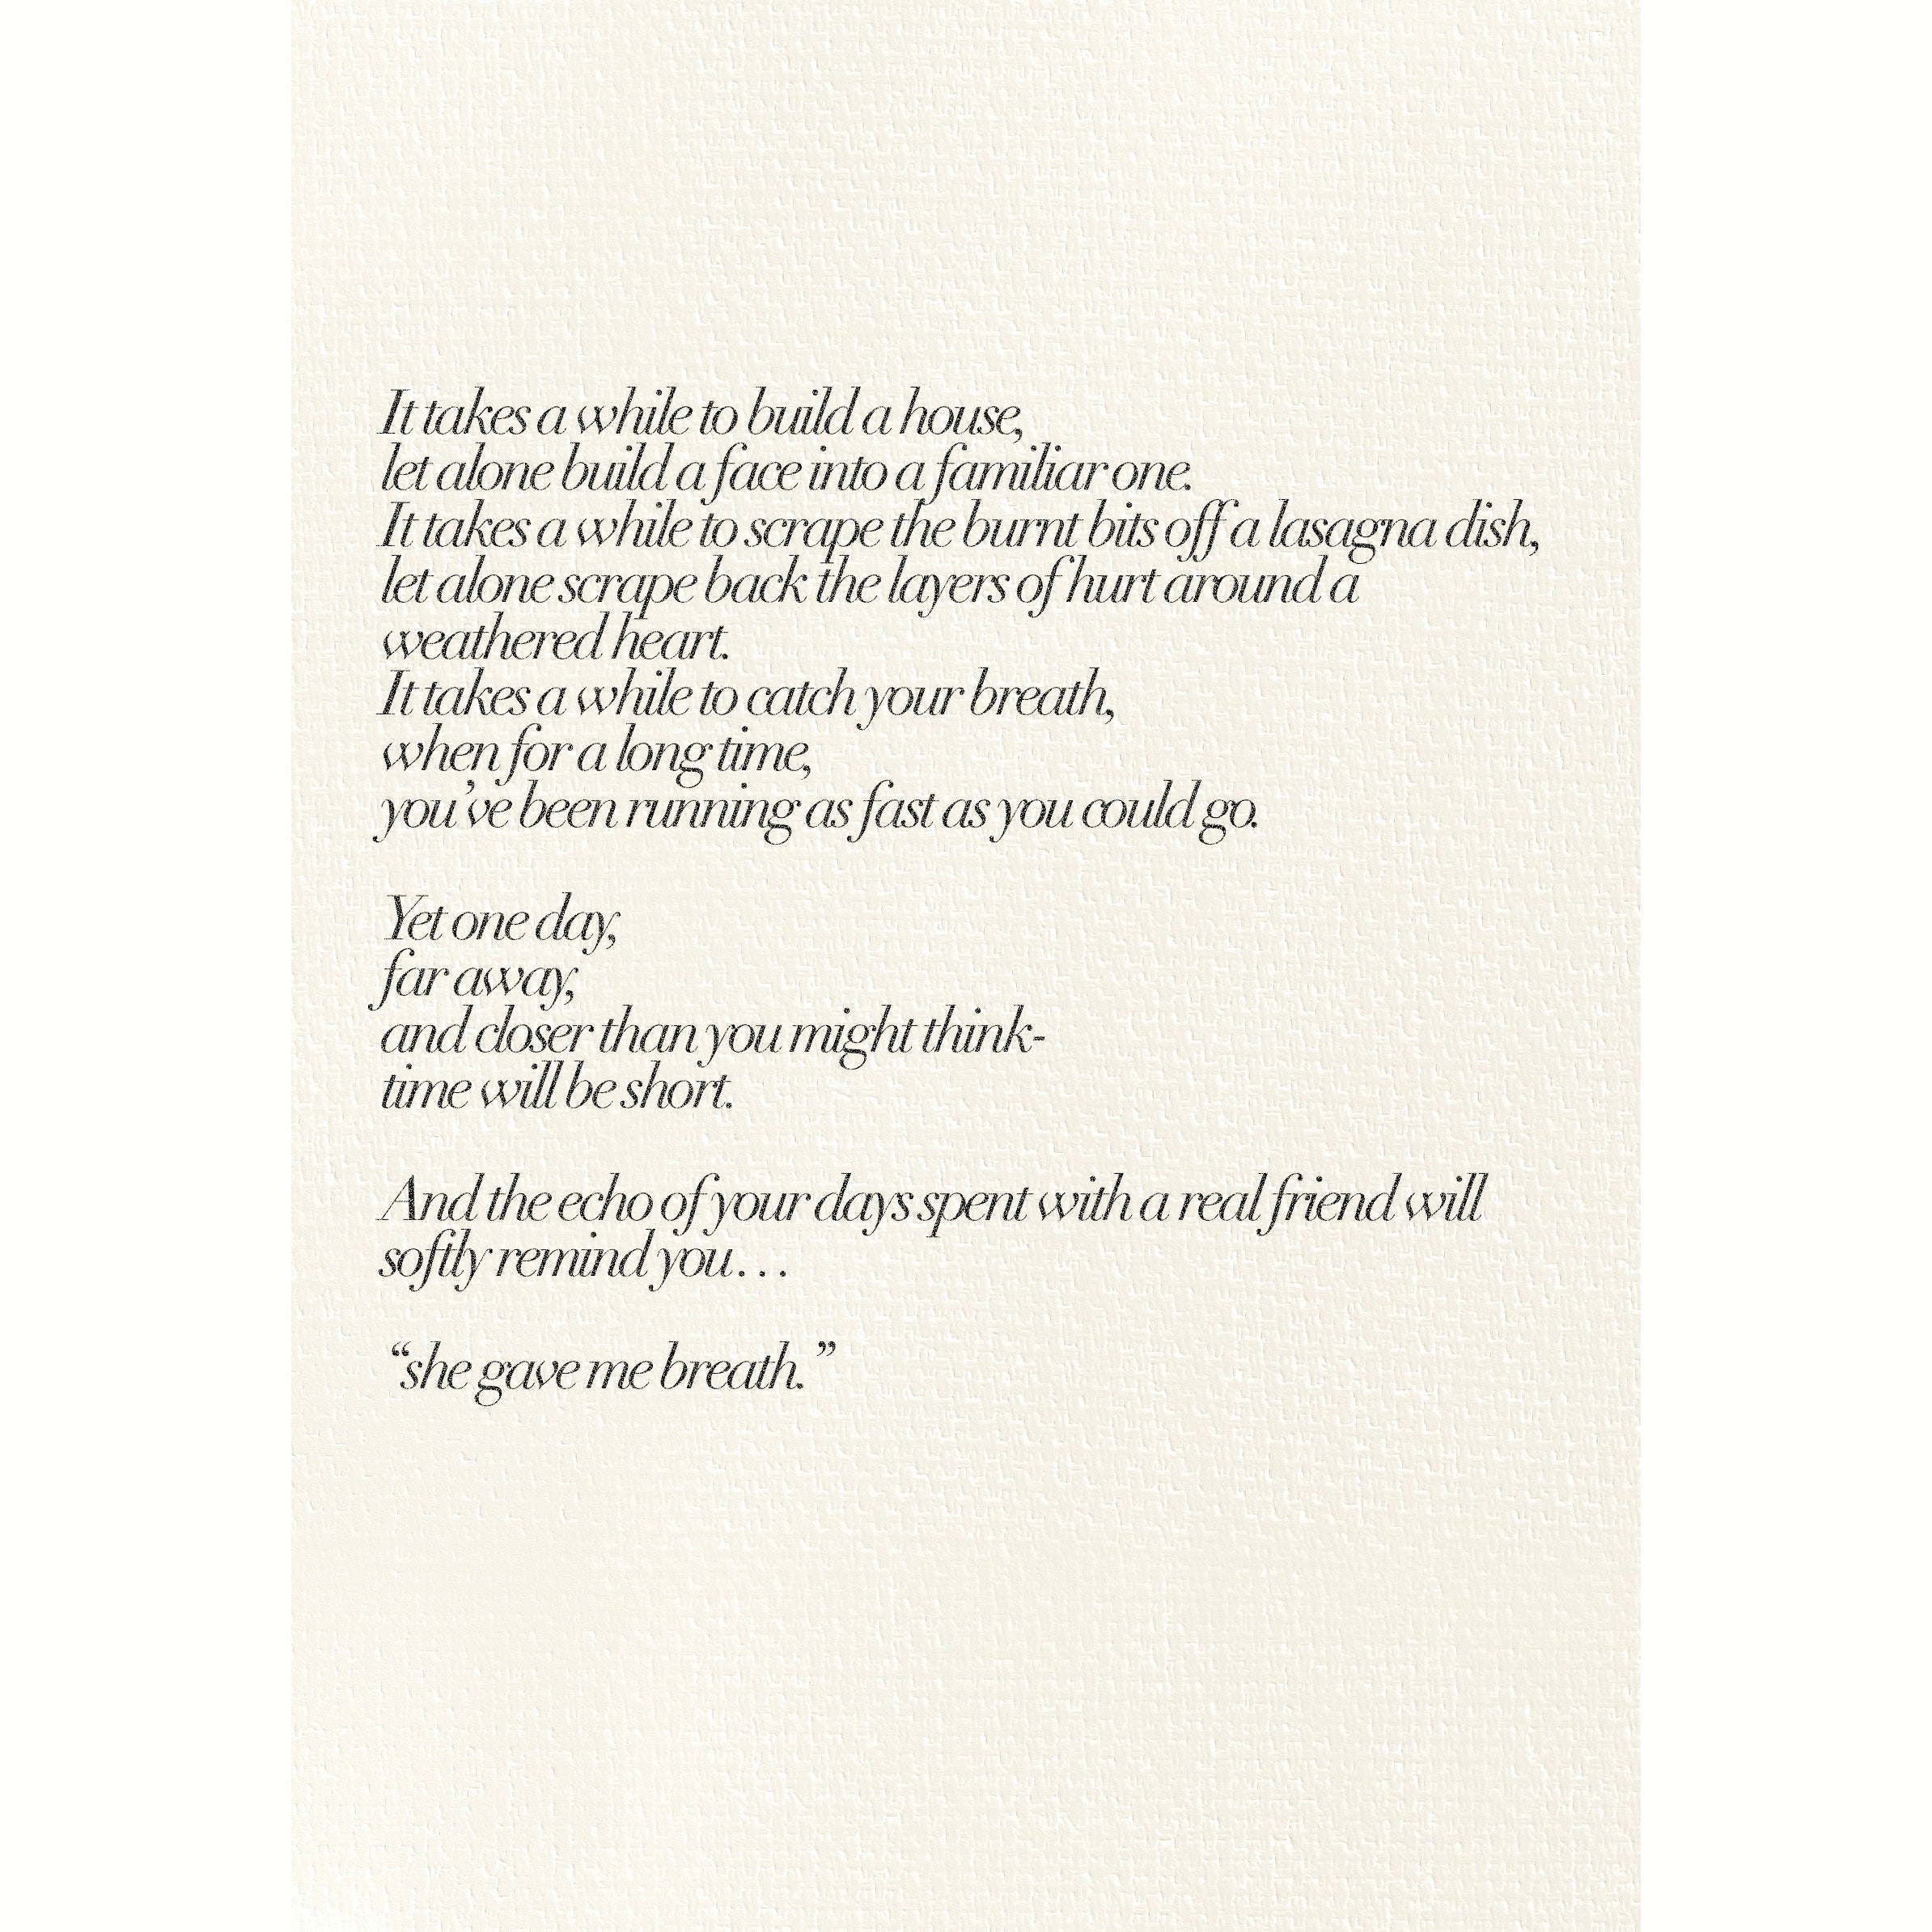 It takes a while to build a house,
let alone build a face into a familiar one.
It takes a while to scrape the burnt bits off a lasagna dish,
let alone scrape back the layers of hurt around a
weathered heart.
It takes a while to catch your breath,
when for a long time,
you’ve been running as fast as you could go.
Yet one day,
far away,
and closer than you might think-
time will be short.
And the echo of your days spent with a real friend will
softly remind you…
“she gave me breath.”